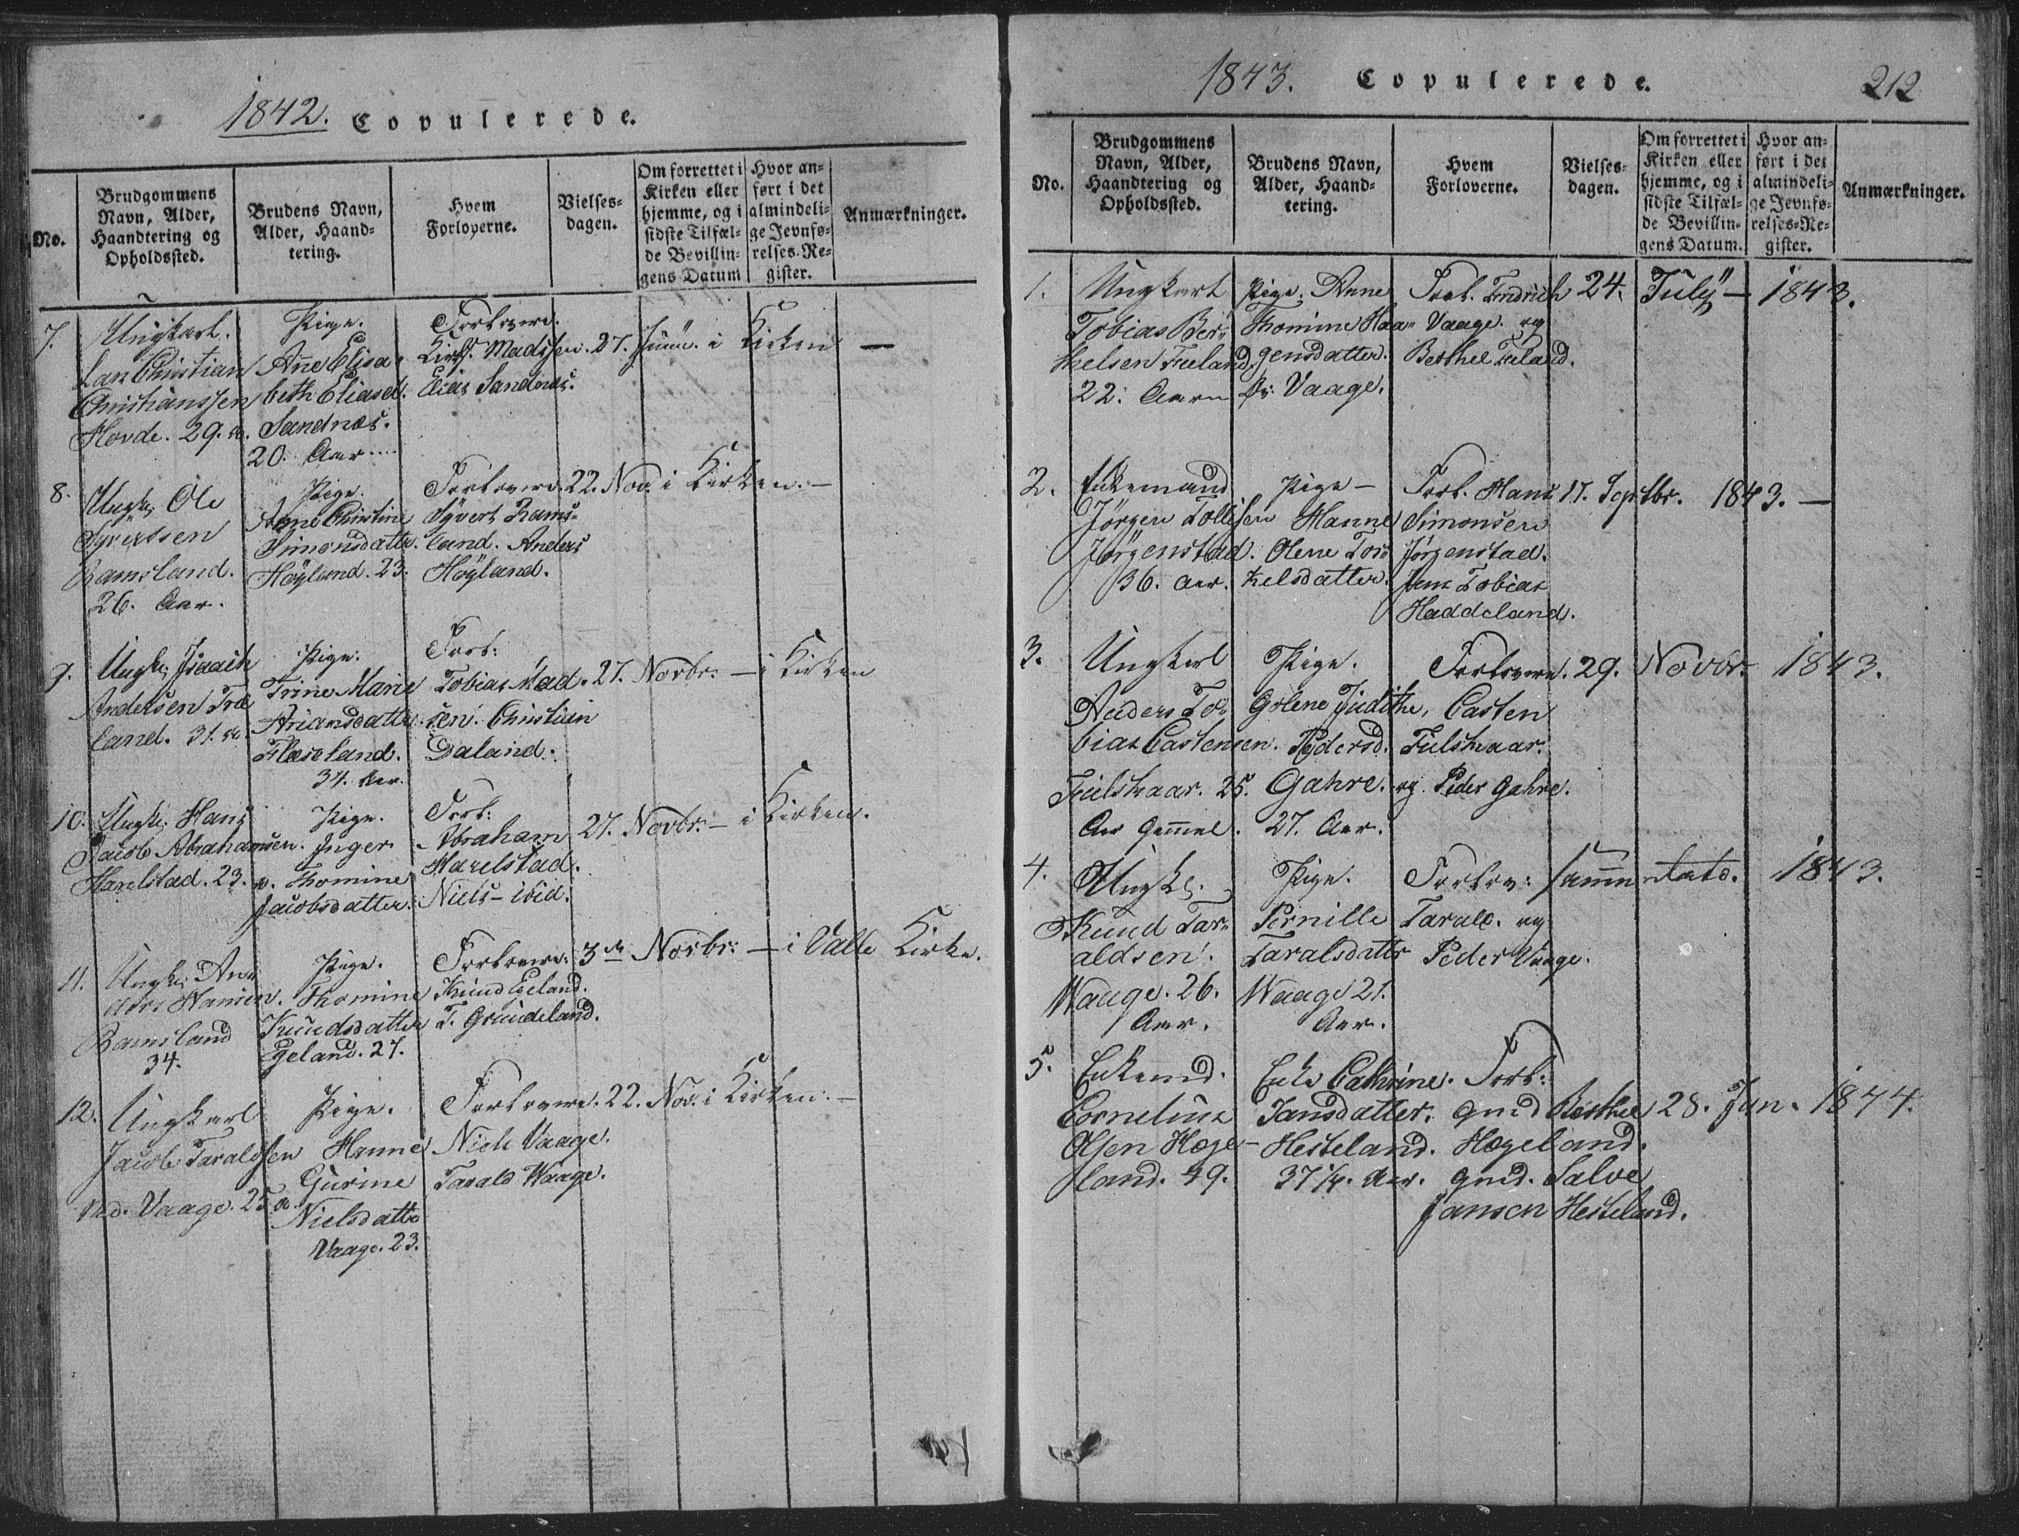 1842. Copulerede.
No.
Brudgommens
Navn, Alder,
Haandtering og
Opholdssted.
Brudens Navn,
Alder, Haand-
tering.
Hvem
Forloverne.
Vielses-
dagen.
Om forrettet i
Kirken eller
hjemme, og i
sidste Tilfæl-
de Bevillin-
gens Datum
Hvor an-
ført i det
almindeli-
ge Jevnfø-
relses-Re-
gister.
Anmærkninger.
7.
Ungkarl.
Lars Christian
Christianssen
Hovde. 29. a.
Pige.
Anne Elisa-
beth Eliasd.
Sandnæs.
20. Aar
Forlovere.
Kirks. Madssen.
Elias Sandnæs.
27. Juni. i Kirken —
8.
Ungk. Ole
Syvertsen
Ramsland.
26. Aar.
Pige.
Anne Christine
Simonsdatter.
Høyland. 23.
Forlovere.
Syvert Rams-
land. Anders
Høyland.
22. Nov. i Kirken. —
9.
Ungk. Isaach
Andersen Træ
land. 31. a.
Pige.
Trine Marie
Ariansdatter.
Flaseland.
34. Aar.
Forl:
Tobias Mad-
sen. Christian
Daland.
27. Novbr. — i Kirken
10.
Ungk. Hans
Jacob Abrahamsen.
Harelstad. 23. a.
Pige.
Inger
Thomine
Jacobsdatter.
Forl:
Abraham
Harelstad.
Niels - ibid.
27. Novbr. — i Kirken.
11.
Ungk. An-
ders Hansen.
Ramsland
34.
Pige.
Thomine
Knudsdatter
Egeland. 27.
Forlovere:
Knud Egeland.
T. Grundeland.
3de Novbr: — i Valle Kirke.
12.
Ungkarl
Jacob Taraldsen
Vaage. 25. a.
Pige.
Hanne
Gurine
Nielsdatter
Vaage. 23.
Forlovere.
Niels Vaage.
Tarald Waage.
22. Nov. i Kirken. —
1843. Copulerede. 212
No.
Brudgommens
Navn, Alder,
Haandtering og
Opholdssted.
Brudens Navn,
Alder, Haand-
tering.
Hvem
Forloverne.
Vielses-
dagen.
Om forrettet i
Kirken eller
hjemme, og i
sidste Tilfæl-
de Bevillin-
gens Datum.
Hvor an-
ført i det
almindeli-
ge Jevnfø-
relses-Re-
gister.
Anmærkninger.
1.
Ungkarl
Tobias Ber-
thelsen Fueland.
22. Aar
Pige. Anne
Thomine Haa-
gensdatter.
Vaage.
Forl. Endrich
Vaage. og
Berthel Fuland.
24. July — 1843.
2.
Enkemand
Jørgen Tollefsen
Jørgenstad.
36. Aar.
Pige —
Hanne
Olene Tor-
kelsdatter.
Forl. Hans
Simonsen
Jørgenstad.
Jens Tobias
Haddeland.
17. Septbr. 1843. —
3.
Ungkarl
Anders To-
bias Castensen.
Fulskaar. 25.
Aar gammel.
Pige.
Golene Judithe,
Pedersd.
Gahre.
27. Aar.
Forlovere.
Casten
Fulskaar.
og Peder Gahre.
29. Novbr. 1843.
4.
Ungk.
Knud Tar-
aldsen.
Waage. 26.
Aar.
Pige.
Pernille
Taralsdatter
Waage 21.
Aar.
Forlov:
Taral. og
Peder Vaage.
samme dato. 1843.
5.
Enkemd.
Cornelius
Olsen Høge-
land. 49.
Enke Cathrine.
Jansdatter.
Hesteland.
37 1/4. Aar.
Forl:
Gmd Berthel
Høgeland.
Gmd. Salve
Jansen Hesteland.
28. Jan. 1844.